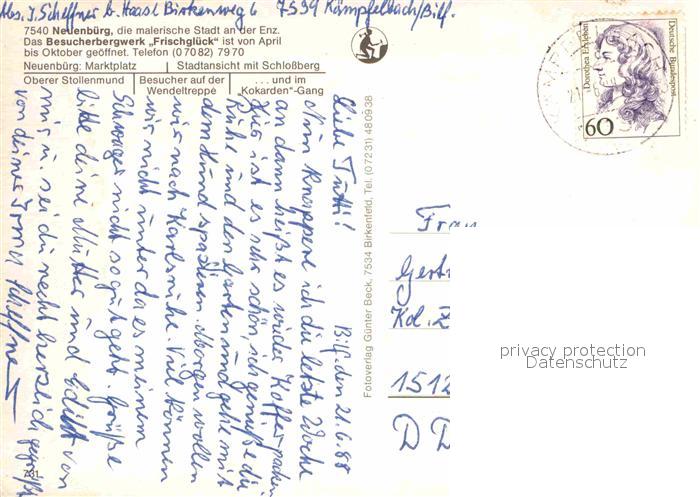 Abs. I. Scheffner b. Haasl Birkenweg 6 7539 Kämpfelbach/Bilf.
7540 Neuenbürg, die malerische Stadt an der Enz.
Das Besucherbergwerk „Frischglück" ist von April
bis Oktober geöffnet. Telefon (07082) 7970
Neuenbürg: Marktplatz Stadtansicht mit Schloßberg
Oberer Stollenmund Besucher auf der Wendeltreppe . . . und im „Kokarden"-Gang
Bilf. den 21.6.88
Liebe Trutti!
Nun knuppere ich die letzte Woche
an dann heißt es wieder Koffer packen
Hier ist es sehr schön, ich genieße die
Ruhe und den Garten und gehe mit
dem Hund spazieren. Morgen wollen
wir nach Karlsruhe. Viel können
wir nicht unter da es meinem
Schwager nicht so gut geht. Grüße
bitte deine Mutter und Edith von
mir u. sei du recht herzlich gegrüßt
von deiner Irma Scheffner
A31
Fotoverlag Günter Beck, 7534 Birkenfeld, Tel. (07231) 480938
Dorothea Erxleben
Deutsche Bundespost
60
Frau
Gert
Kol. Z
1512
DD
privacy protection
Datenschutz